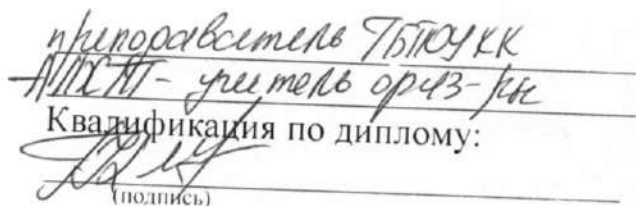 преподаватель ГБПОУ КК
учитель физ-ры
Квалификация по диплому:
(подпись)